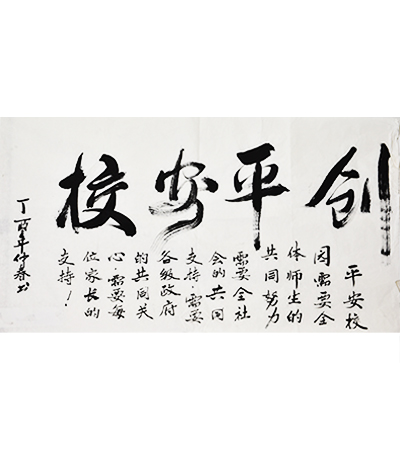 创平安校
平安校
园需要全
体师生的
共同努力
需要全社
会的共同
支持·需要
各级政府
的共同关
心·需要每
位家长的
支持！
丁酉年仲春书